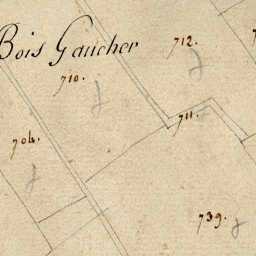 Bois Gaucher
712.
710.
711.
704.
739.